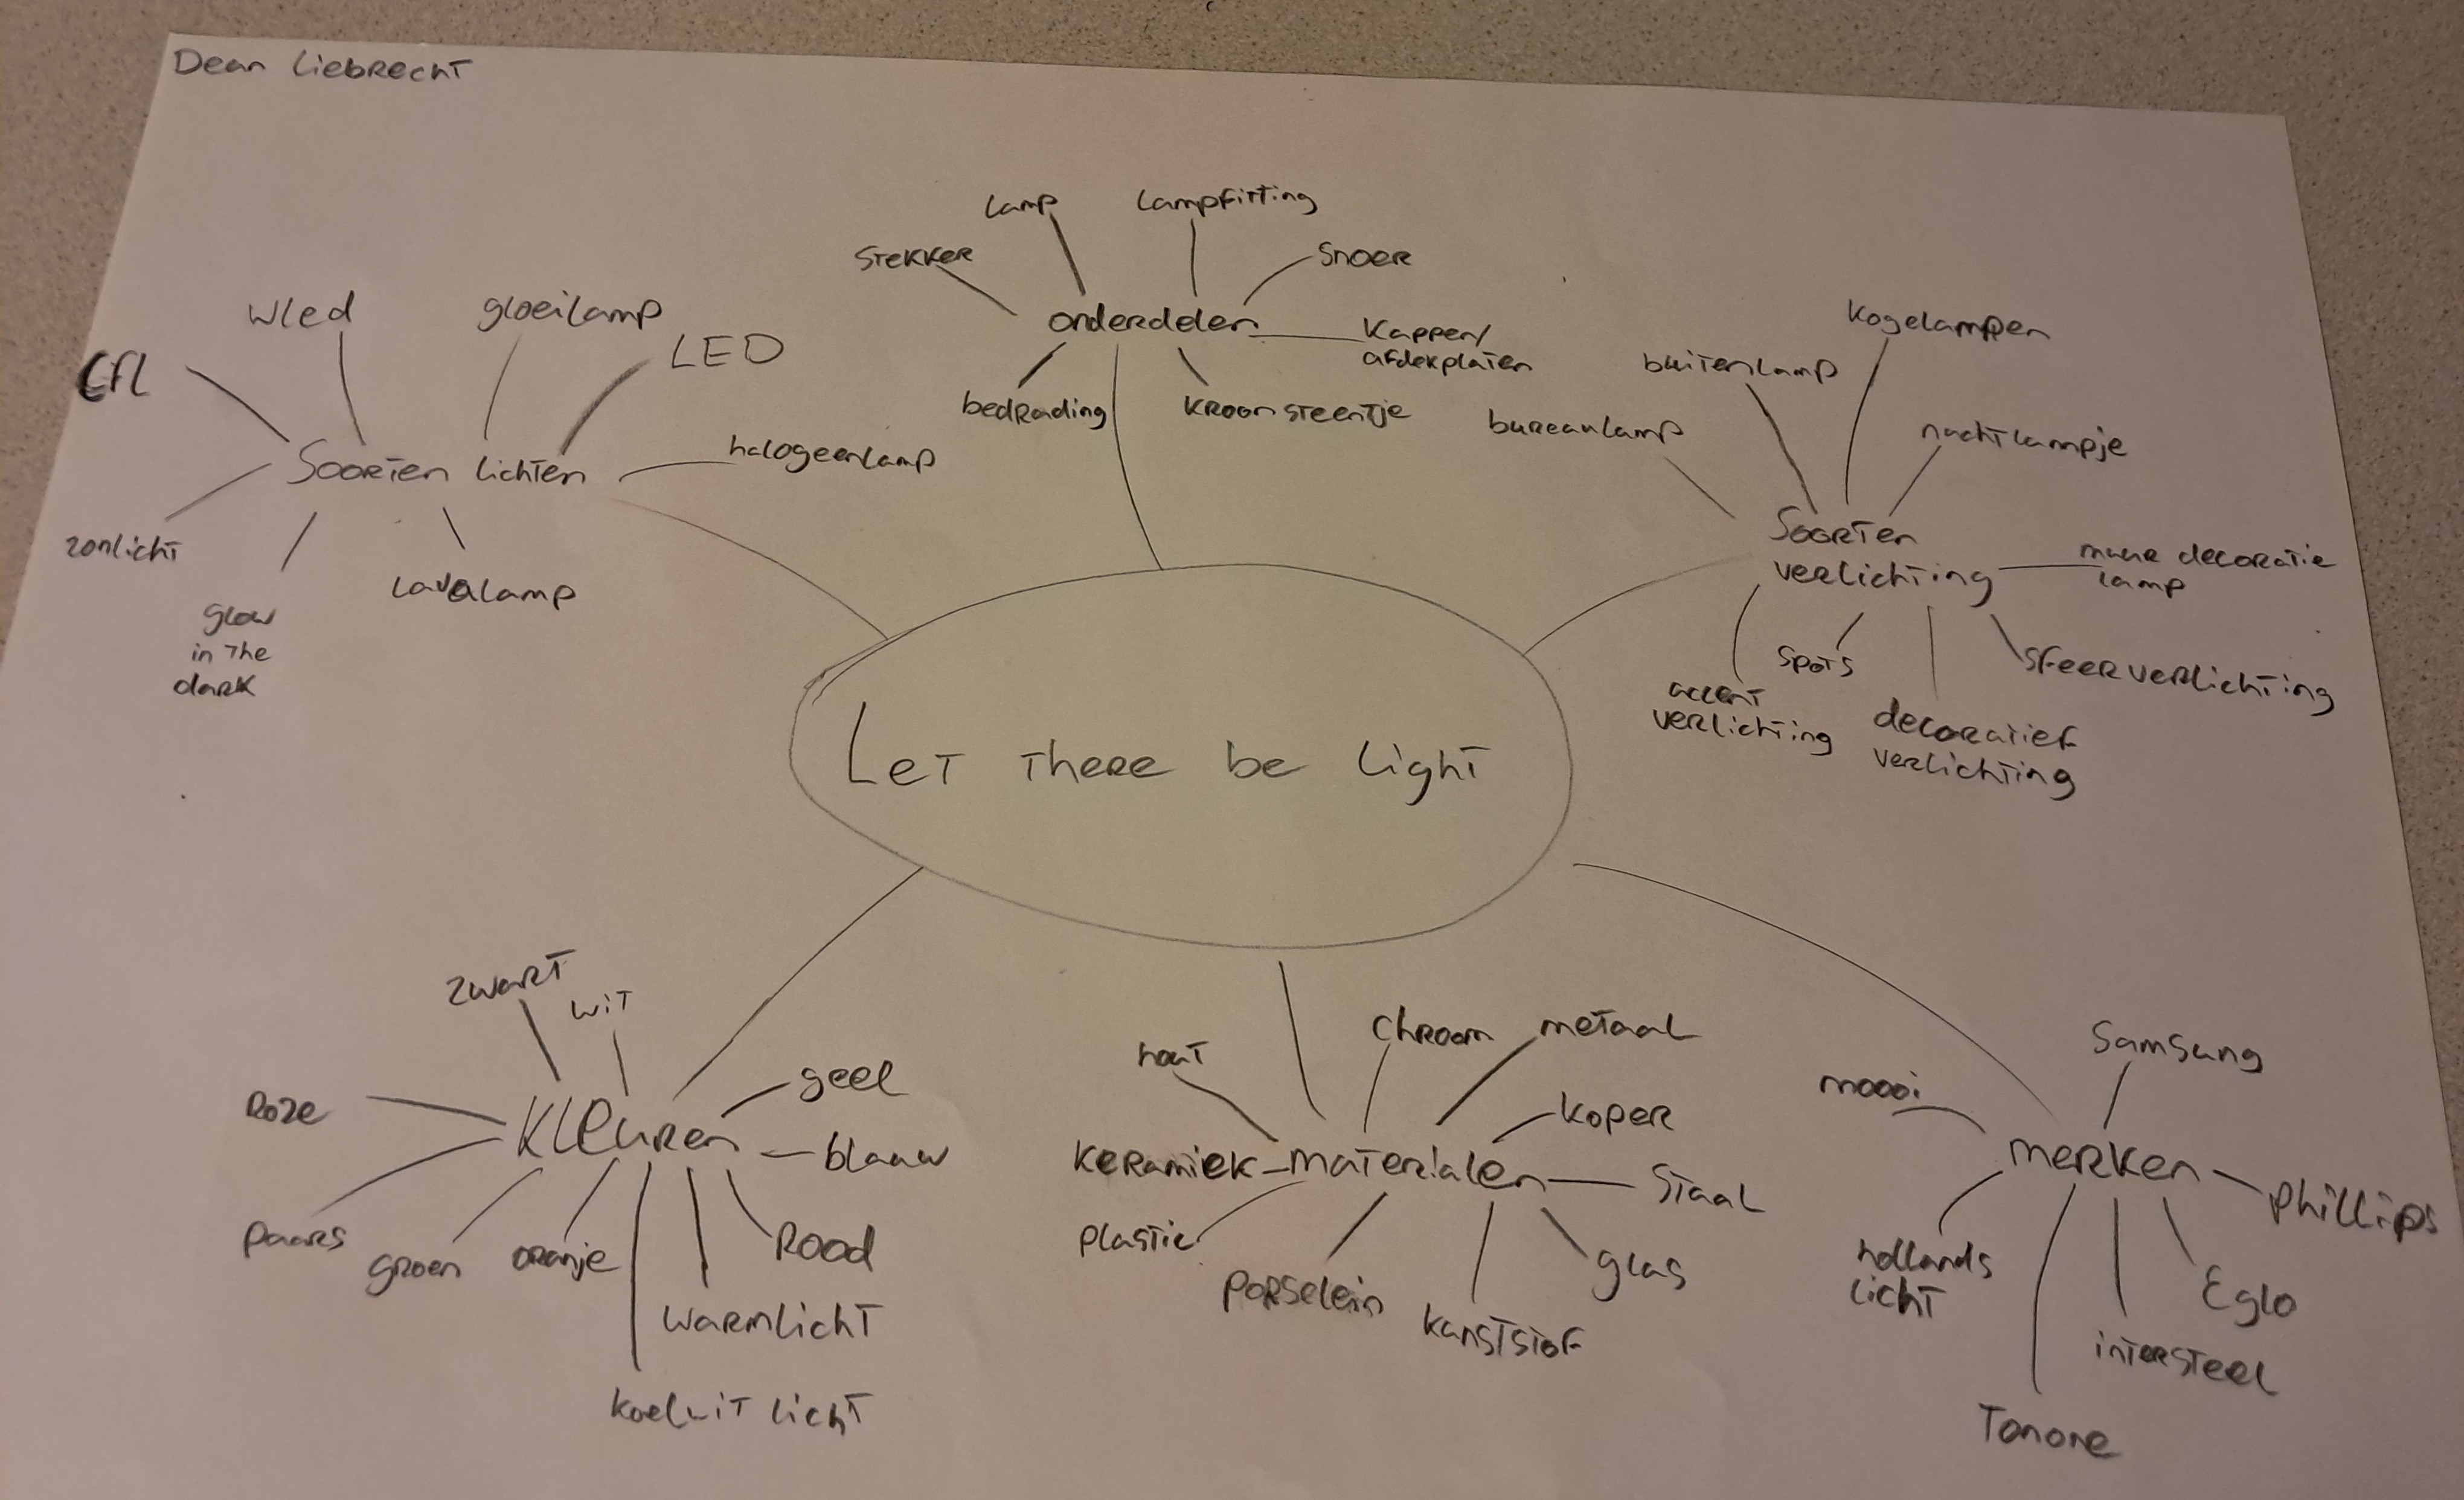 Dean Liebrecht
Let there be light
Soorten lichten
CFL
wled
gloeilamp
LED
halogeenlamp
lavalamp
glow
in the
dark
zonlicht
onderdelen
stekker
lamp
lampfitting
snoer
kappen/
afdekplaten
kroonsteentje
bedrading
Soorten
verlichting
bureaulamp
buitenlamp
kogelamppen
nachtlampje
muur decoratie
lamp
sfeerverlichting
decoratief
verlichting
spots
accent
verlichting
kleuren
roze
zwart
wit
geel
blauw
Rood
warmlicht
koelwit licht
oranje
groen
paars
materialen
keramiek
hout
Chroom
metaal
koper
staal
glas
kunststof
porselein
plastic
merken
moooi
Samsung
phillips
Eglo
intersteel
Tonone
hollands
licht